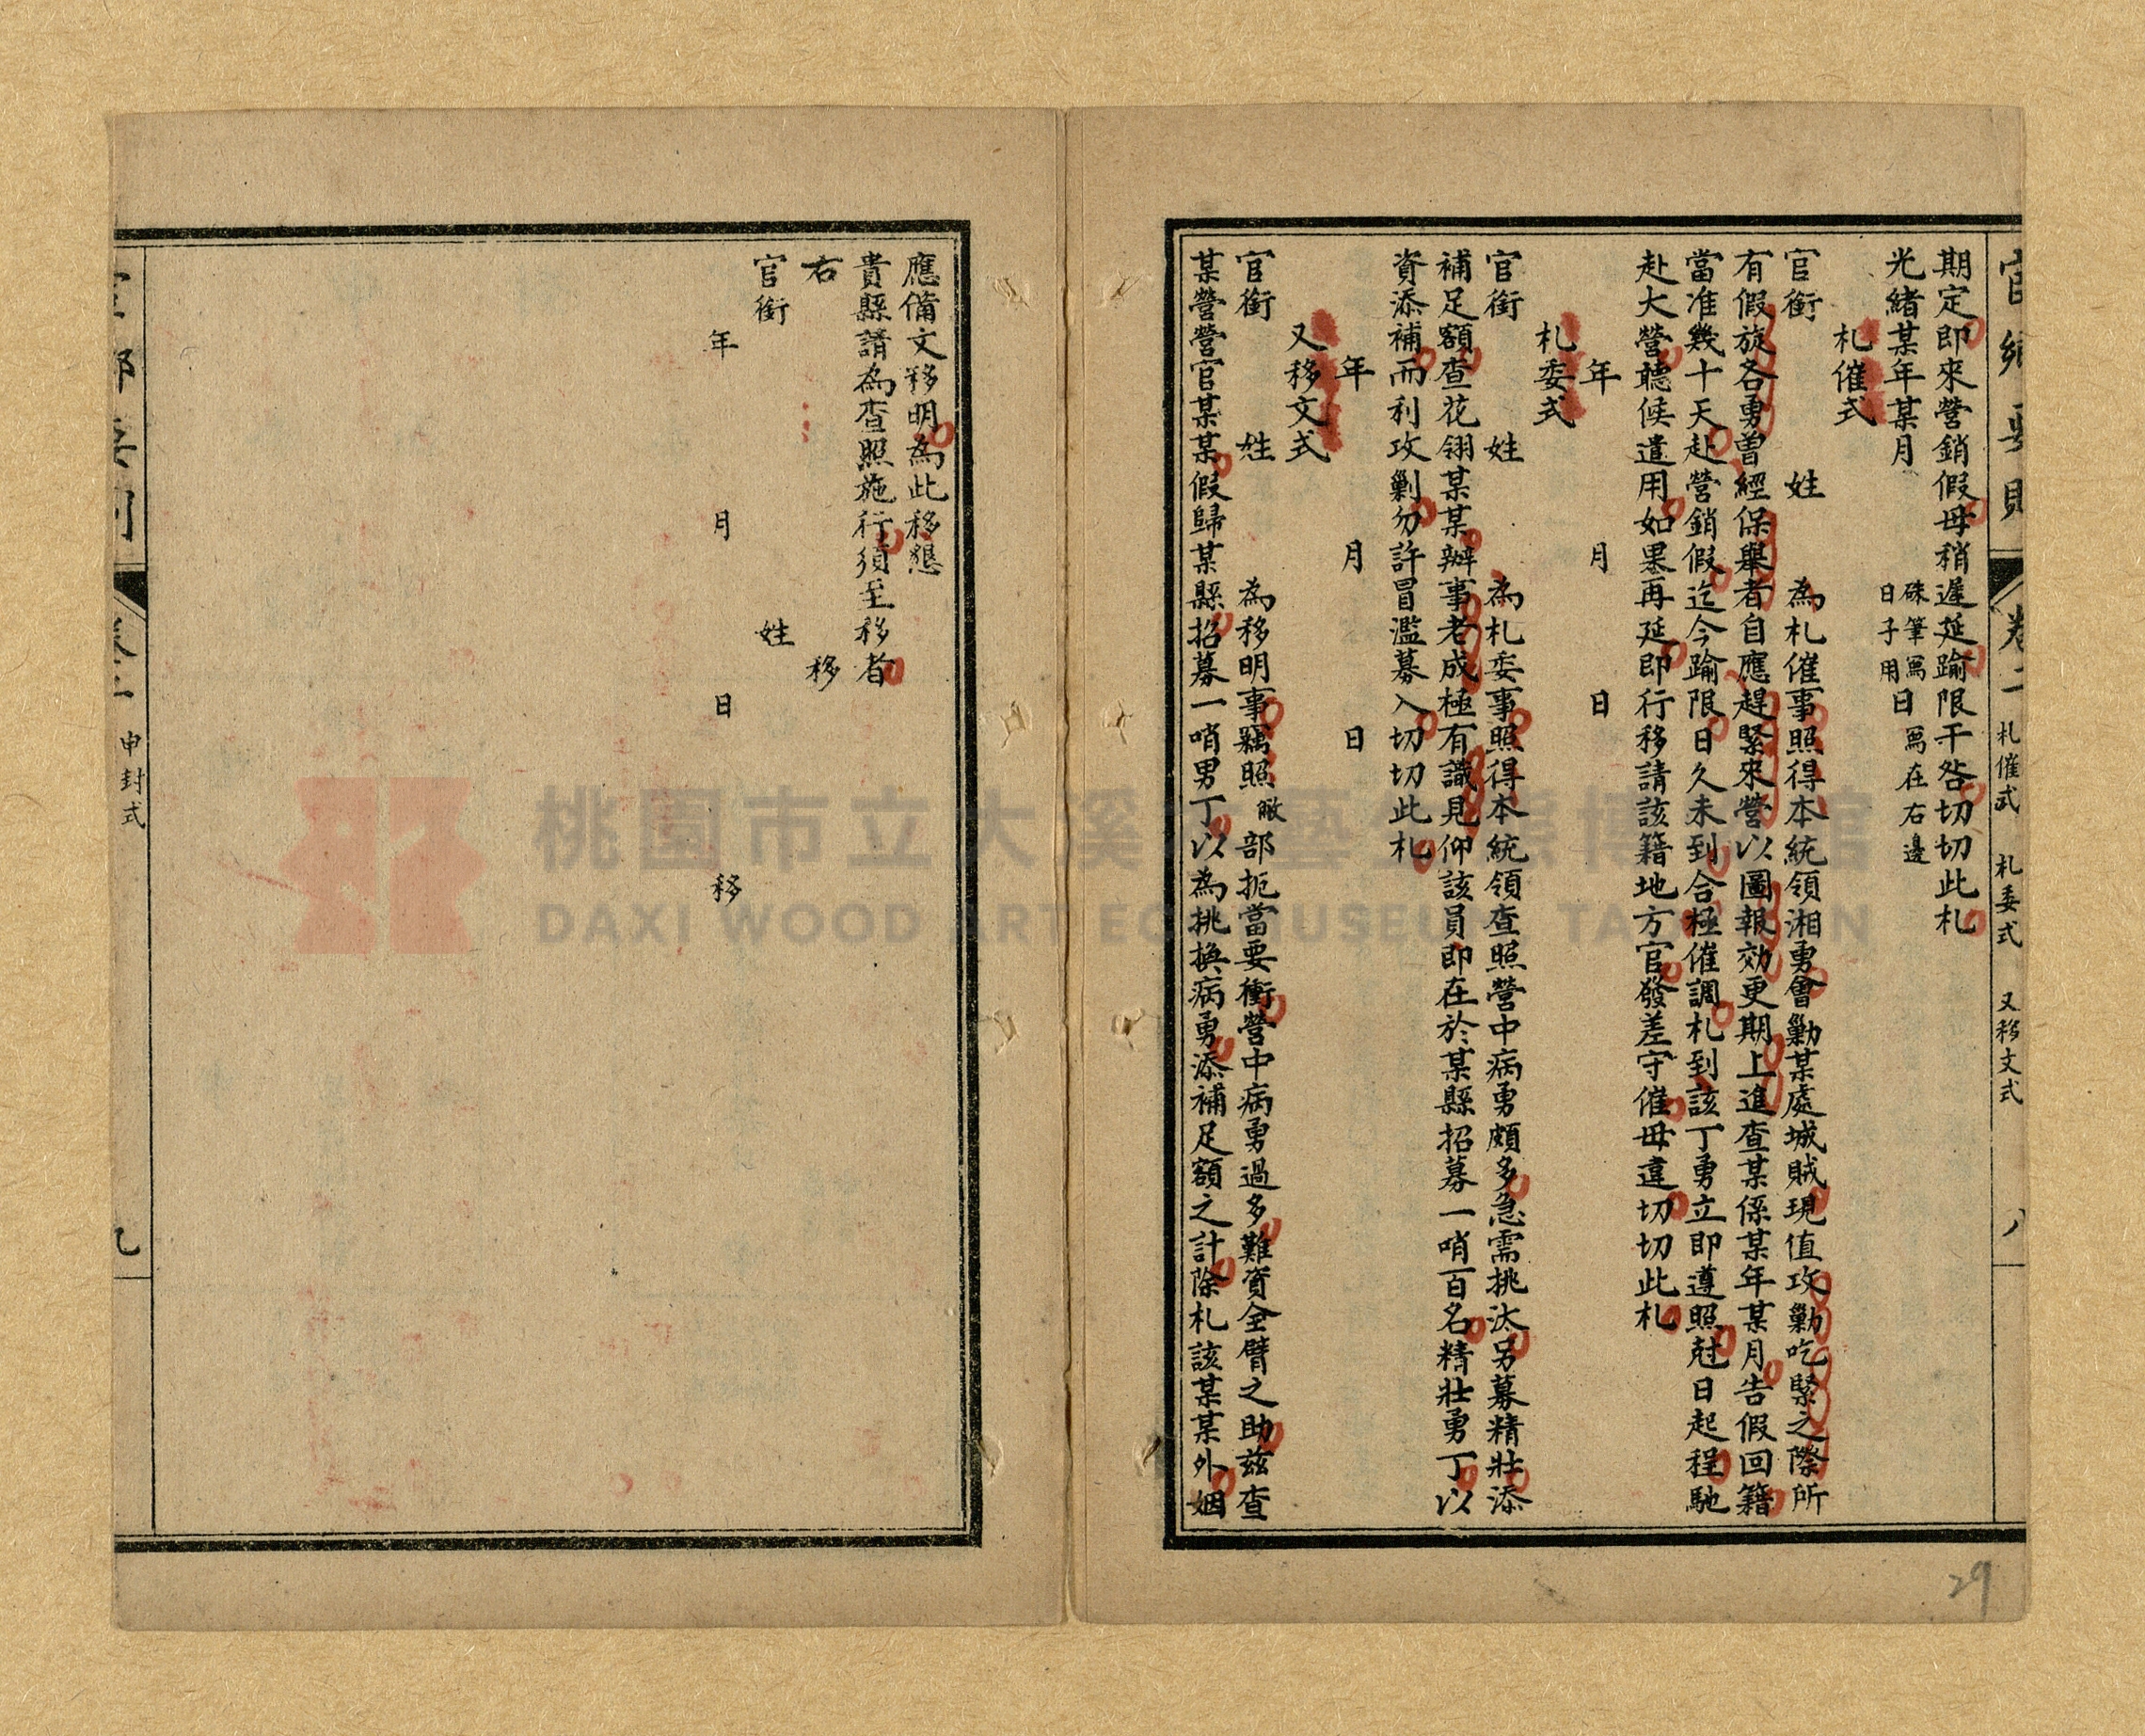 官鄉要則 卷二 札催式 札委式 又移文式 八
期定即來營銷假毋稍遲延踰限干咎切切此札
光緒某年某月 硃筆寫日子用 日 寫在右邊
札催式
官銜 姓 為札催事照得本統領湘勇會勦某處城賊現值攻勦吃緊之際所
有假旋各勇曾經保舉者自應趕緊來營以圖報効更期上進查某係某年某月告假回籍
當准幾十天赴營銷假迄今踰限日久未到合極催調札到該丁勇立即遵照尅日起程馳
赴大營聽候遣用如果再延即行移請該籍地方官發差守催毋違切切此札
年 月 日
札委式
官銜 姓 為札委事照得本統領查照營中病勇頗多急需挑汰另募精壯添
補足額查花翎某某辦事老成極有識見仰該員即在於某縣招募一哨百名精壯勇丁以
資添補而利攻剿勿許冒濫募入切切此札
年 月 日
又移文式
官銜 姓 為移明事竊照 敝 部扼當要衝營中病勇過多難資全臂之助茲查
某營營官某某假歸某縣招募一哨男丁以為挑換病勇添補足額之計除札該某某外姻
應備文移明為此移懇
貴縣請為查照施行須至移者
右 移
官銜 姓
年 月 日 移
卷二 申封式 九
桃園市立大溪木藝生態博物館
DAXI WOOD ART ECOMUSEUM, TAOYUAN
29